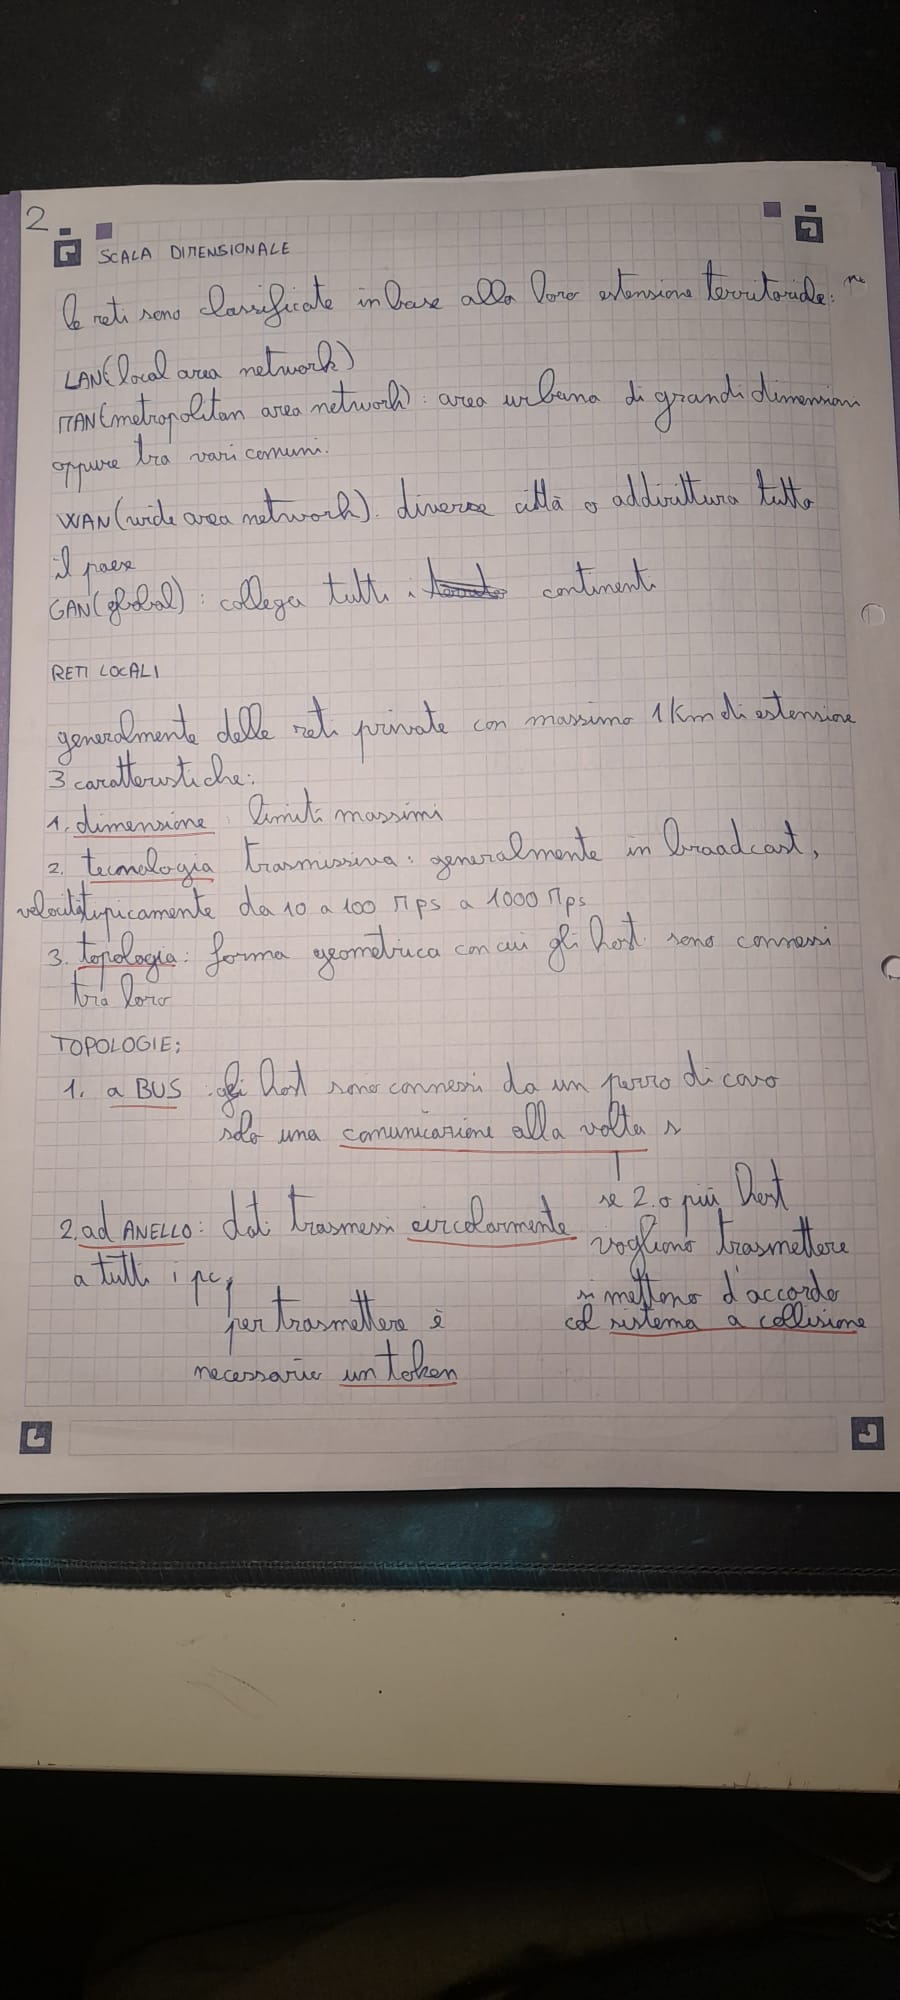 2
SCALA DIMENSIONALE
le reti sono classificate in base alla loro estensione territoriale:
LAN(local area network)
MAN(metropolitan area network): area urbana di grandi dimensioni
oppure tra vari comuni.
WAN(wide area network): diverse città o addirittura tutto
il paese
GAN(global): collega tutti i continenti
RETI LOCALI
generalmente delle reti private con massimo 1 Km di estensione
3 caratteristiche:
1. dimensione: limiti massimi
2. tecnologia trasmissiva: generalmente in broadcast,
velocità tipicamente da 10 a 100 Mps a 1000 Mps
3. topologia: forma geometrica con cui gli host sono connessi
tra loro
TOPOLOGIE:
1. a BUS: gli host sono connessi da un pezzo di cavo
solo una comunicazione alla volta
se 2 o più host
vogliono trasmettere
si mettono d'accordo
col sistema a collisione
2. ad ANELLO: dati trasmessi circolarmente
a tutti i pc,
per trasmettere è
necessario un token